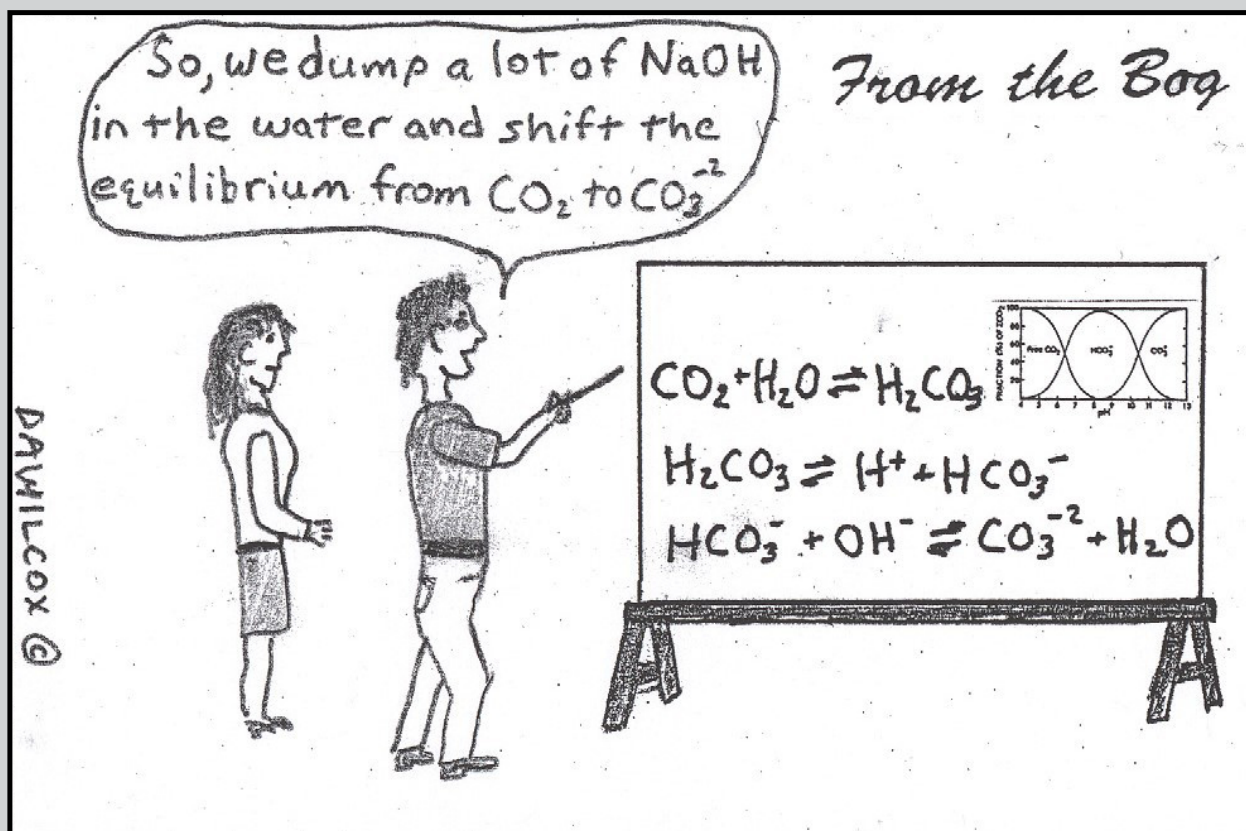 So, we dump a lot of NaOH
in the water and shift the
equilibrium from CO₂ to CO₃⁻²
From the Bog
CO₂+H₂O⇌H₂CO₃
H₂CO₃⇌H⁺+HCO₃⁻
HCO₃⁻+OH⁻⇌CO₃⁻²+H₂O
FRACTION (%) OF ΣCO₂
100
80
60
40
20
Free CO₂
HCO₃⁻
CO₃⁼
4 5 6 7 8 9 10 11 12 13
pH
DAWILCOX ©